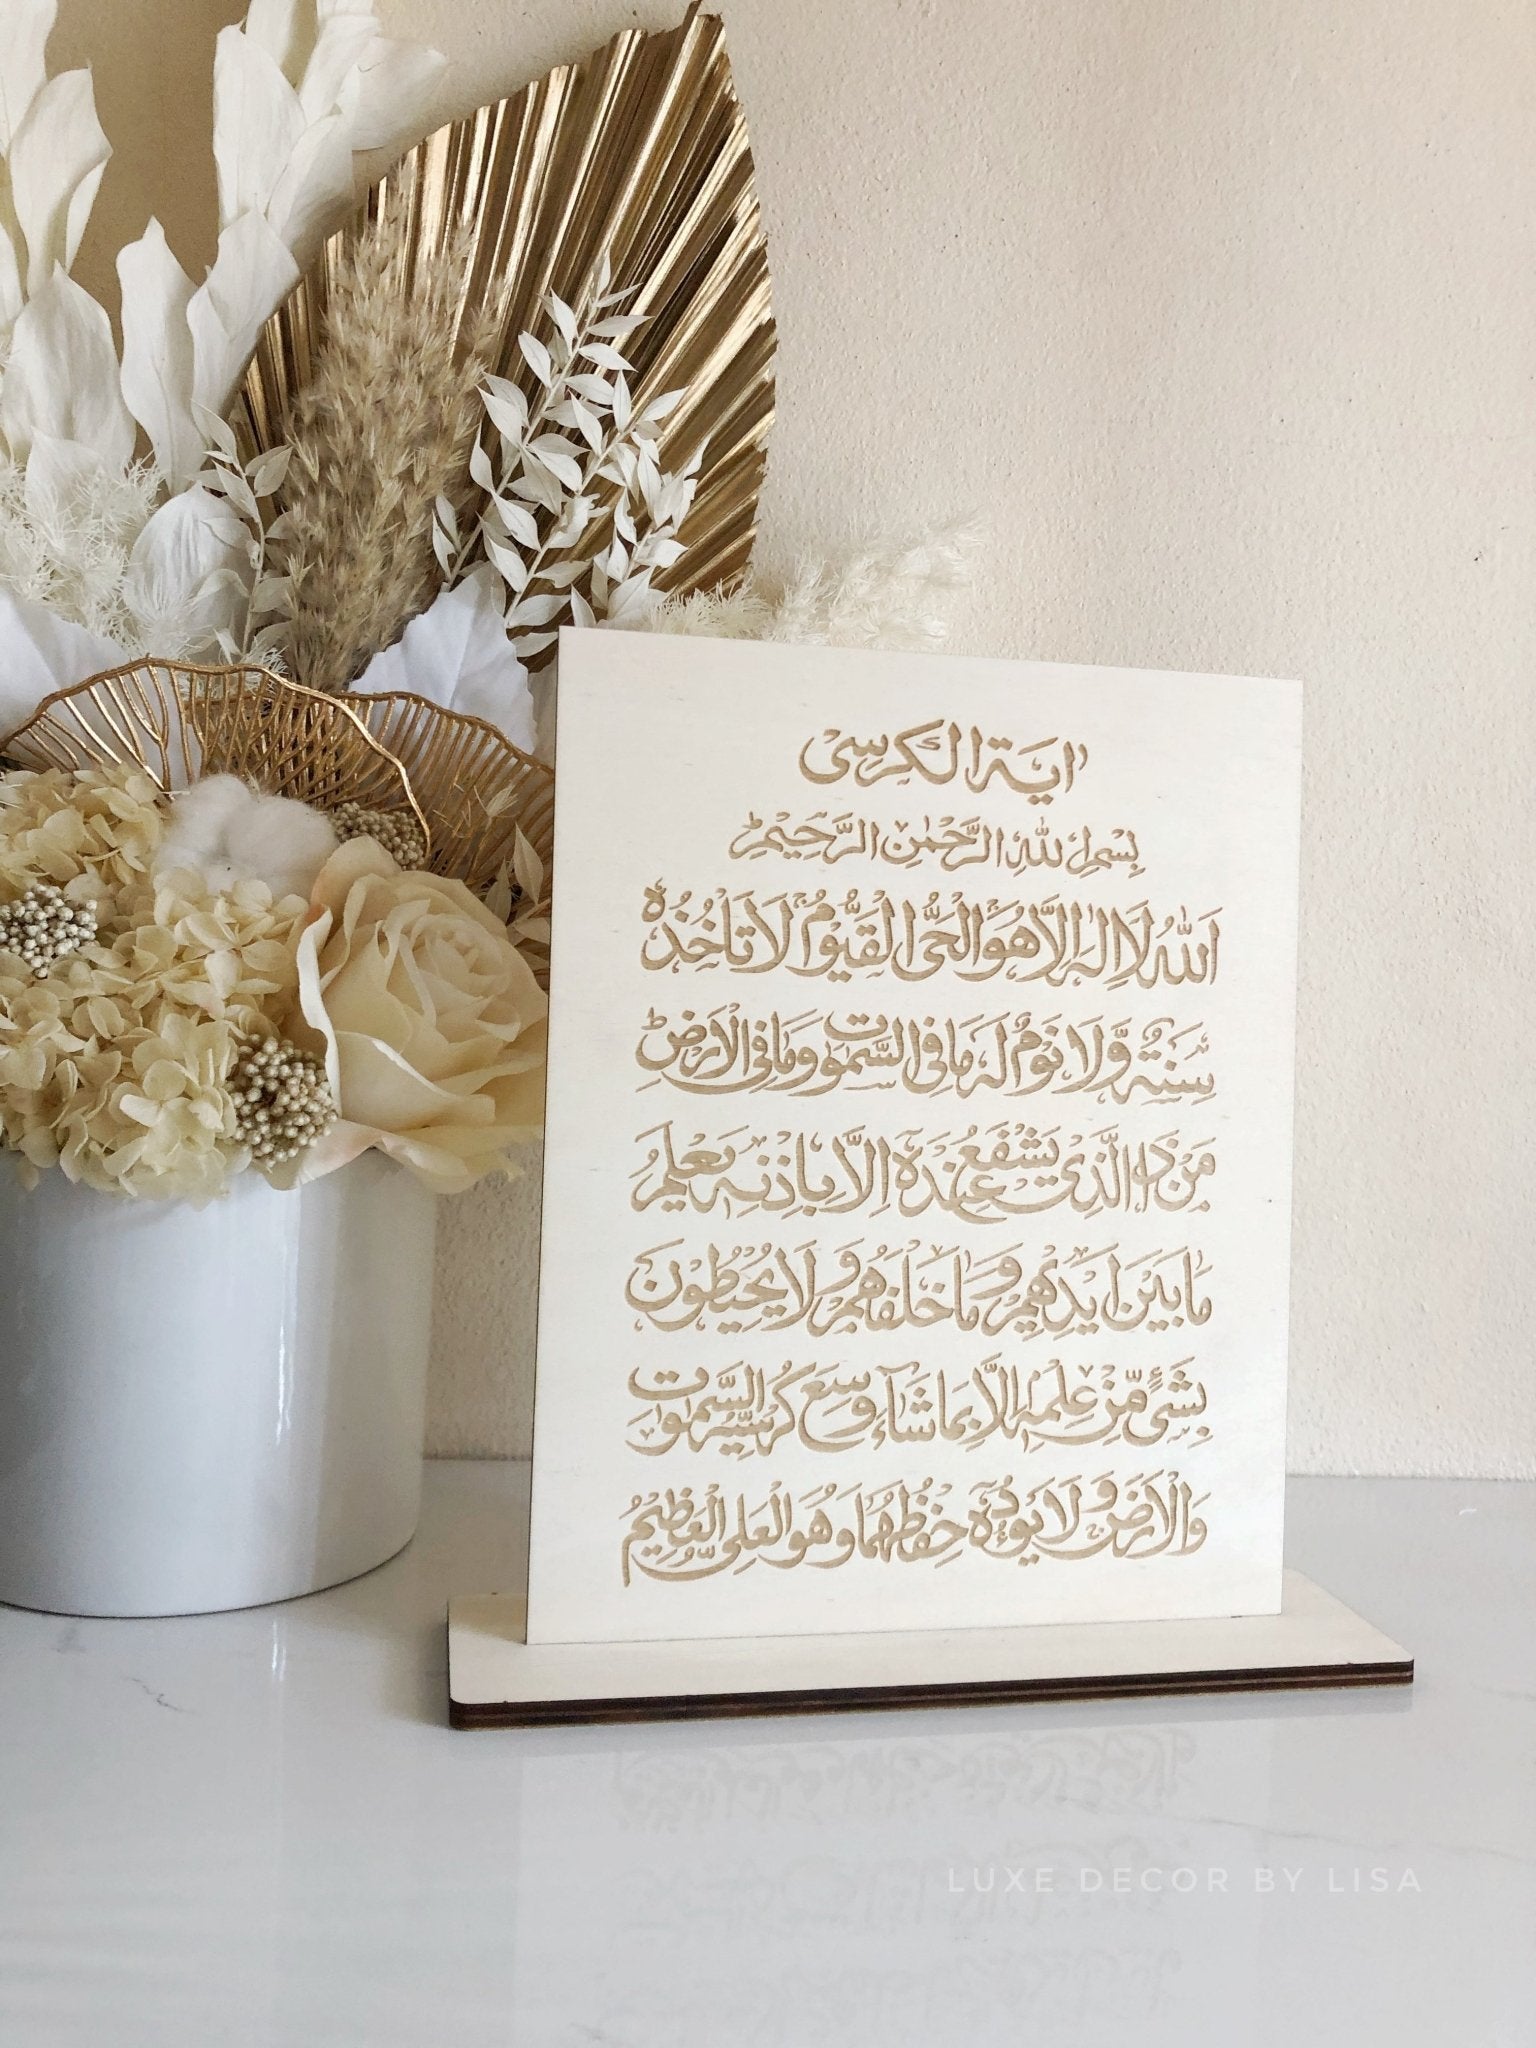 اية الكرسى
بِسْمِ اللهِ الرَّحْمٰنِ الرَّحِيْمِ
اَللهُ لَا اِلٰهَ اِلَّا هُوَ اَلْحَىُّ الْقَيُّوْمُ لَا تَاْخُذُهٗ
سِنَةٌ وَّلَا نَوْمٌ لَهٗ مَا فِى السَّمٰوٰتِ وَمَا فِى الْاَرْضِ
مَنْ ذَا الَّذِىْ يَشْفَعُ عِنْدَهٗ اِلَّا بِاِذْنِهٖ يَعْلَمُ
مَا بَيْنَ اَيْدِيْهِمْ وَمَا خَلْفَهُمْ وَلَا يُحِيْطُوْنَ
بِشَىْءٍ مِّنْ عِلْمِهٖ اِلَّا بِمَا شَآءَ وَسِعَ كُرْسِيُّهُ السَّمٰوٰتِ
وَالْاَرْضَ وَلَا يَؤُدُهٗ حِفْظُهُمَا وَهُوَ الْعَلِىُّ الْعَظِيْمُ
LUXE DECOR BY LISA